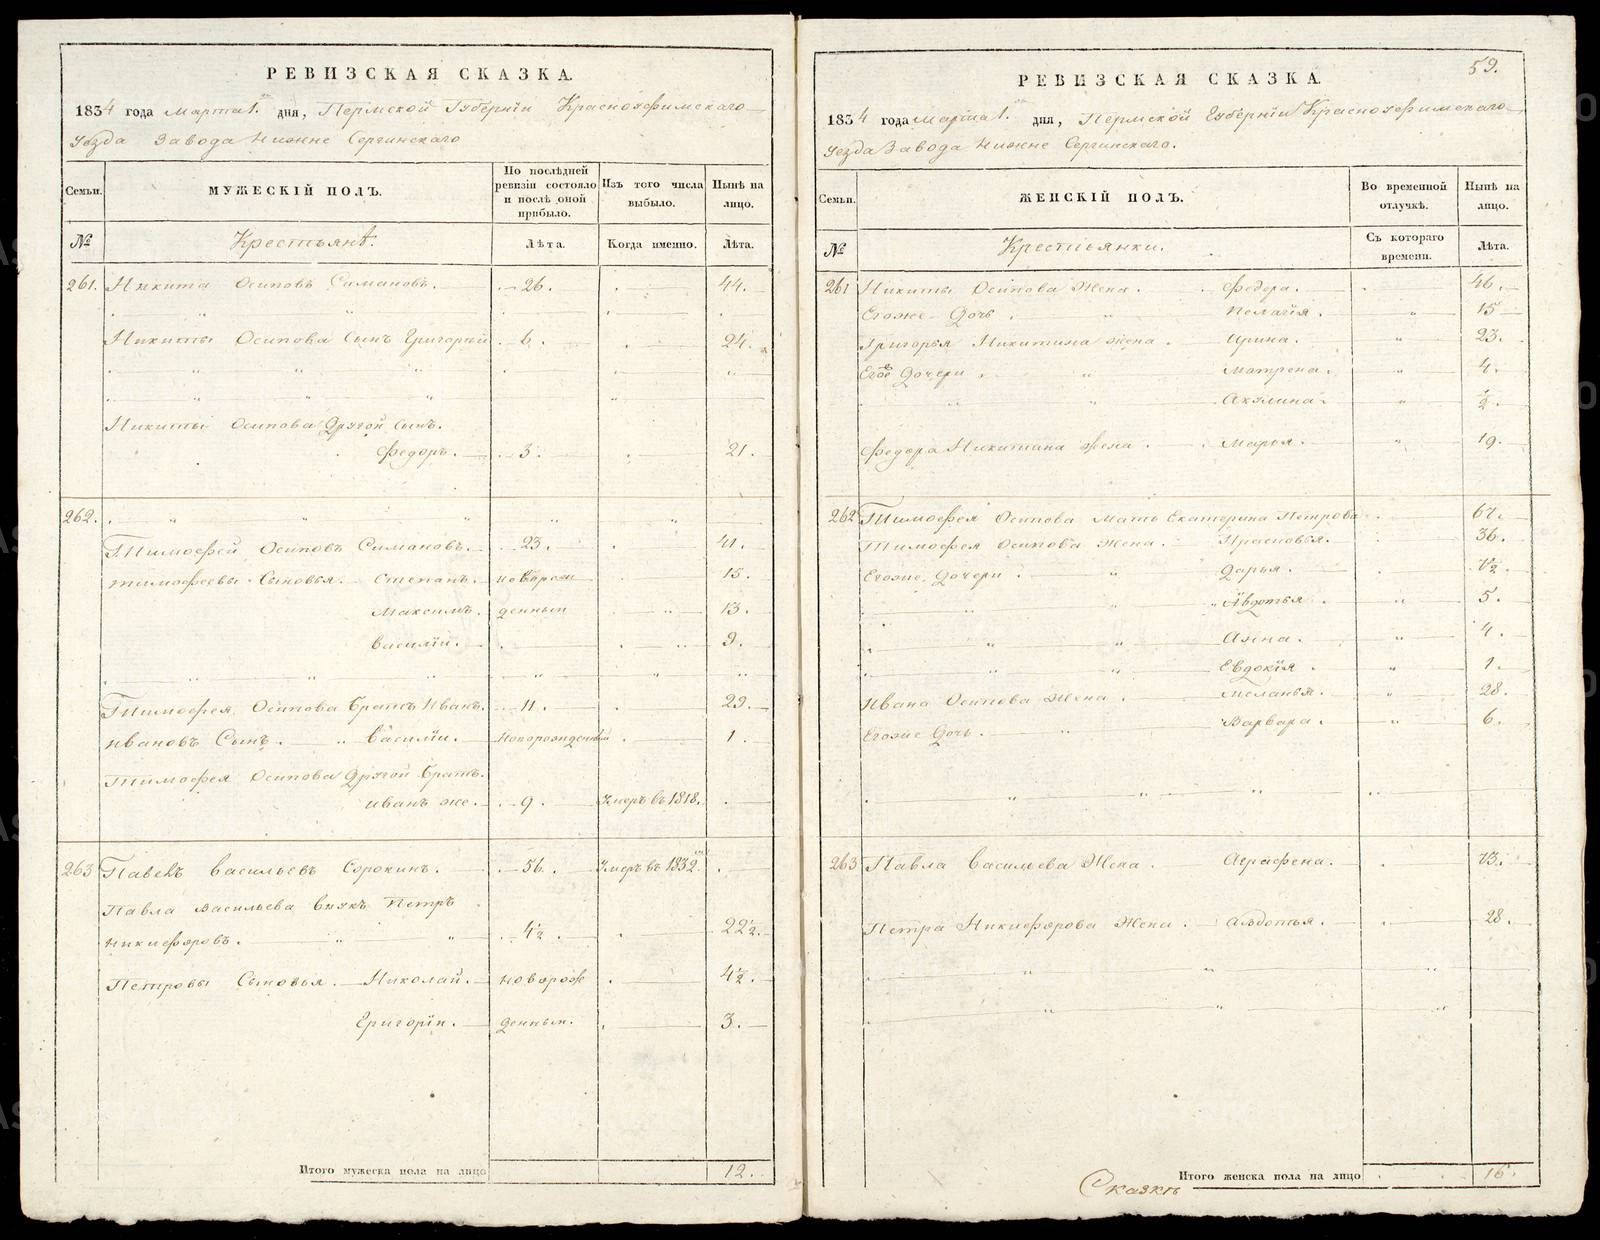 РЕВИЗСКАЯ СКАЗКА.
1834 года Марта 1. дня, Пермской Губернiи Красноуфимскаго
Уѣзда Завода Нижне Сергинскаго
Семьи.
МУЖЕСКIЙ ПОЛЪ.
По послѣдней ревизiи состояло и послѣ оной прибыло.
Изъ того числа выбыло.
Нынѣ на лицо.
№
Крестьянѣ.
Лѣта.
Когда именно.
Лѣта.
261. Никита Осиповъ Симановъ. 26. 44.
Никиты Осипова Сынъ Григорий 6. 24.
Никиты Осипова Другой Сынъ.
Федоръ. 3. 21.
262.
Тимофей Осиповъ Симановъ. 23. 41.
Тимофеевы Сыновья. Степанъ. новорож 15.
Максимъ. денныи 13.
Василiи. 9.
Тимофея Осипова Братъ Иванъ. 11. 29.
Ивановъ Сынъ. Василiи. Новорожденный 1.
Тимофея Осипова Другой Братъ.
Иванъ же. 9. Умеръ въ 1818.
263 Павелъ Васильевъ Сорокинъ. 56. Умеръ въ 1832.
Павла Васильева Внукъ Петръ
Никифоровъ. 4½. 22½.
Петровы Сыновья. Николай. новорож 4½.
Григорiи. денныи. 3.
Итого мужеска пола на лицо 12.
59.
РЕВИЗСКАЯ СКАЗКА.
1834 года Марта 1. дня, Пермской Губернiи Красноуфимскаго
Уезда Завода Нижне Сергинскаго.
Семьи.
ЖЕНСКIЙ ПОЛЪ.
Во временной отлучкѣ.
Нынѣ на лицо.
№
Крестьянки.
Съ котораго времени.
Лѣта.
261 Никиты Осипова Жена. Федора. 46.
Егоже Дочь. Пелагiя. 15
Григорья Никитина жена. Ирина. 23.
Его Дочери. Матрена. 4.
Акулина. ½.
Федора Никитина Жена. Марья. 19.
262 Тимофея Осипова Мать Екатерина Петрова 67.
Тимофея Осипова Жена. Прасковья. 36.
Егоже Дочери. Дарья.
Авдотья. 5.
Анна. 4.
Евдокiя. 1.
Ивана Осипова Жена. Меланья. 28.
Егоже Дочь. Варвара. 6.
263 Павла Васильева Жена. Аграфена. 73.
Петра Никифорова Жена. Авдотья. 28.
Итого женска пола на лицо 16.
Сказкѣ